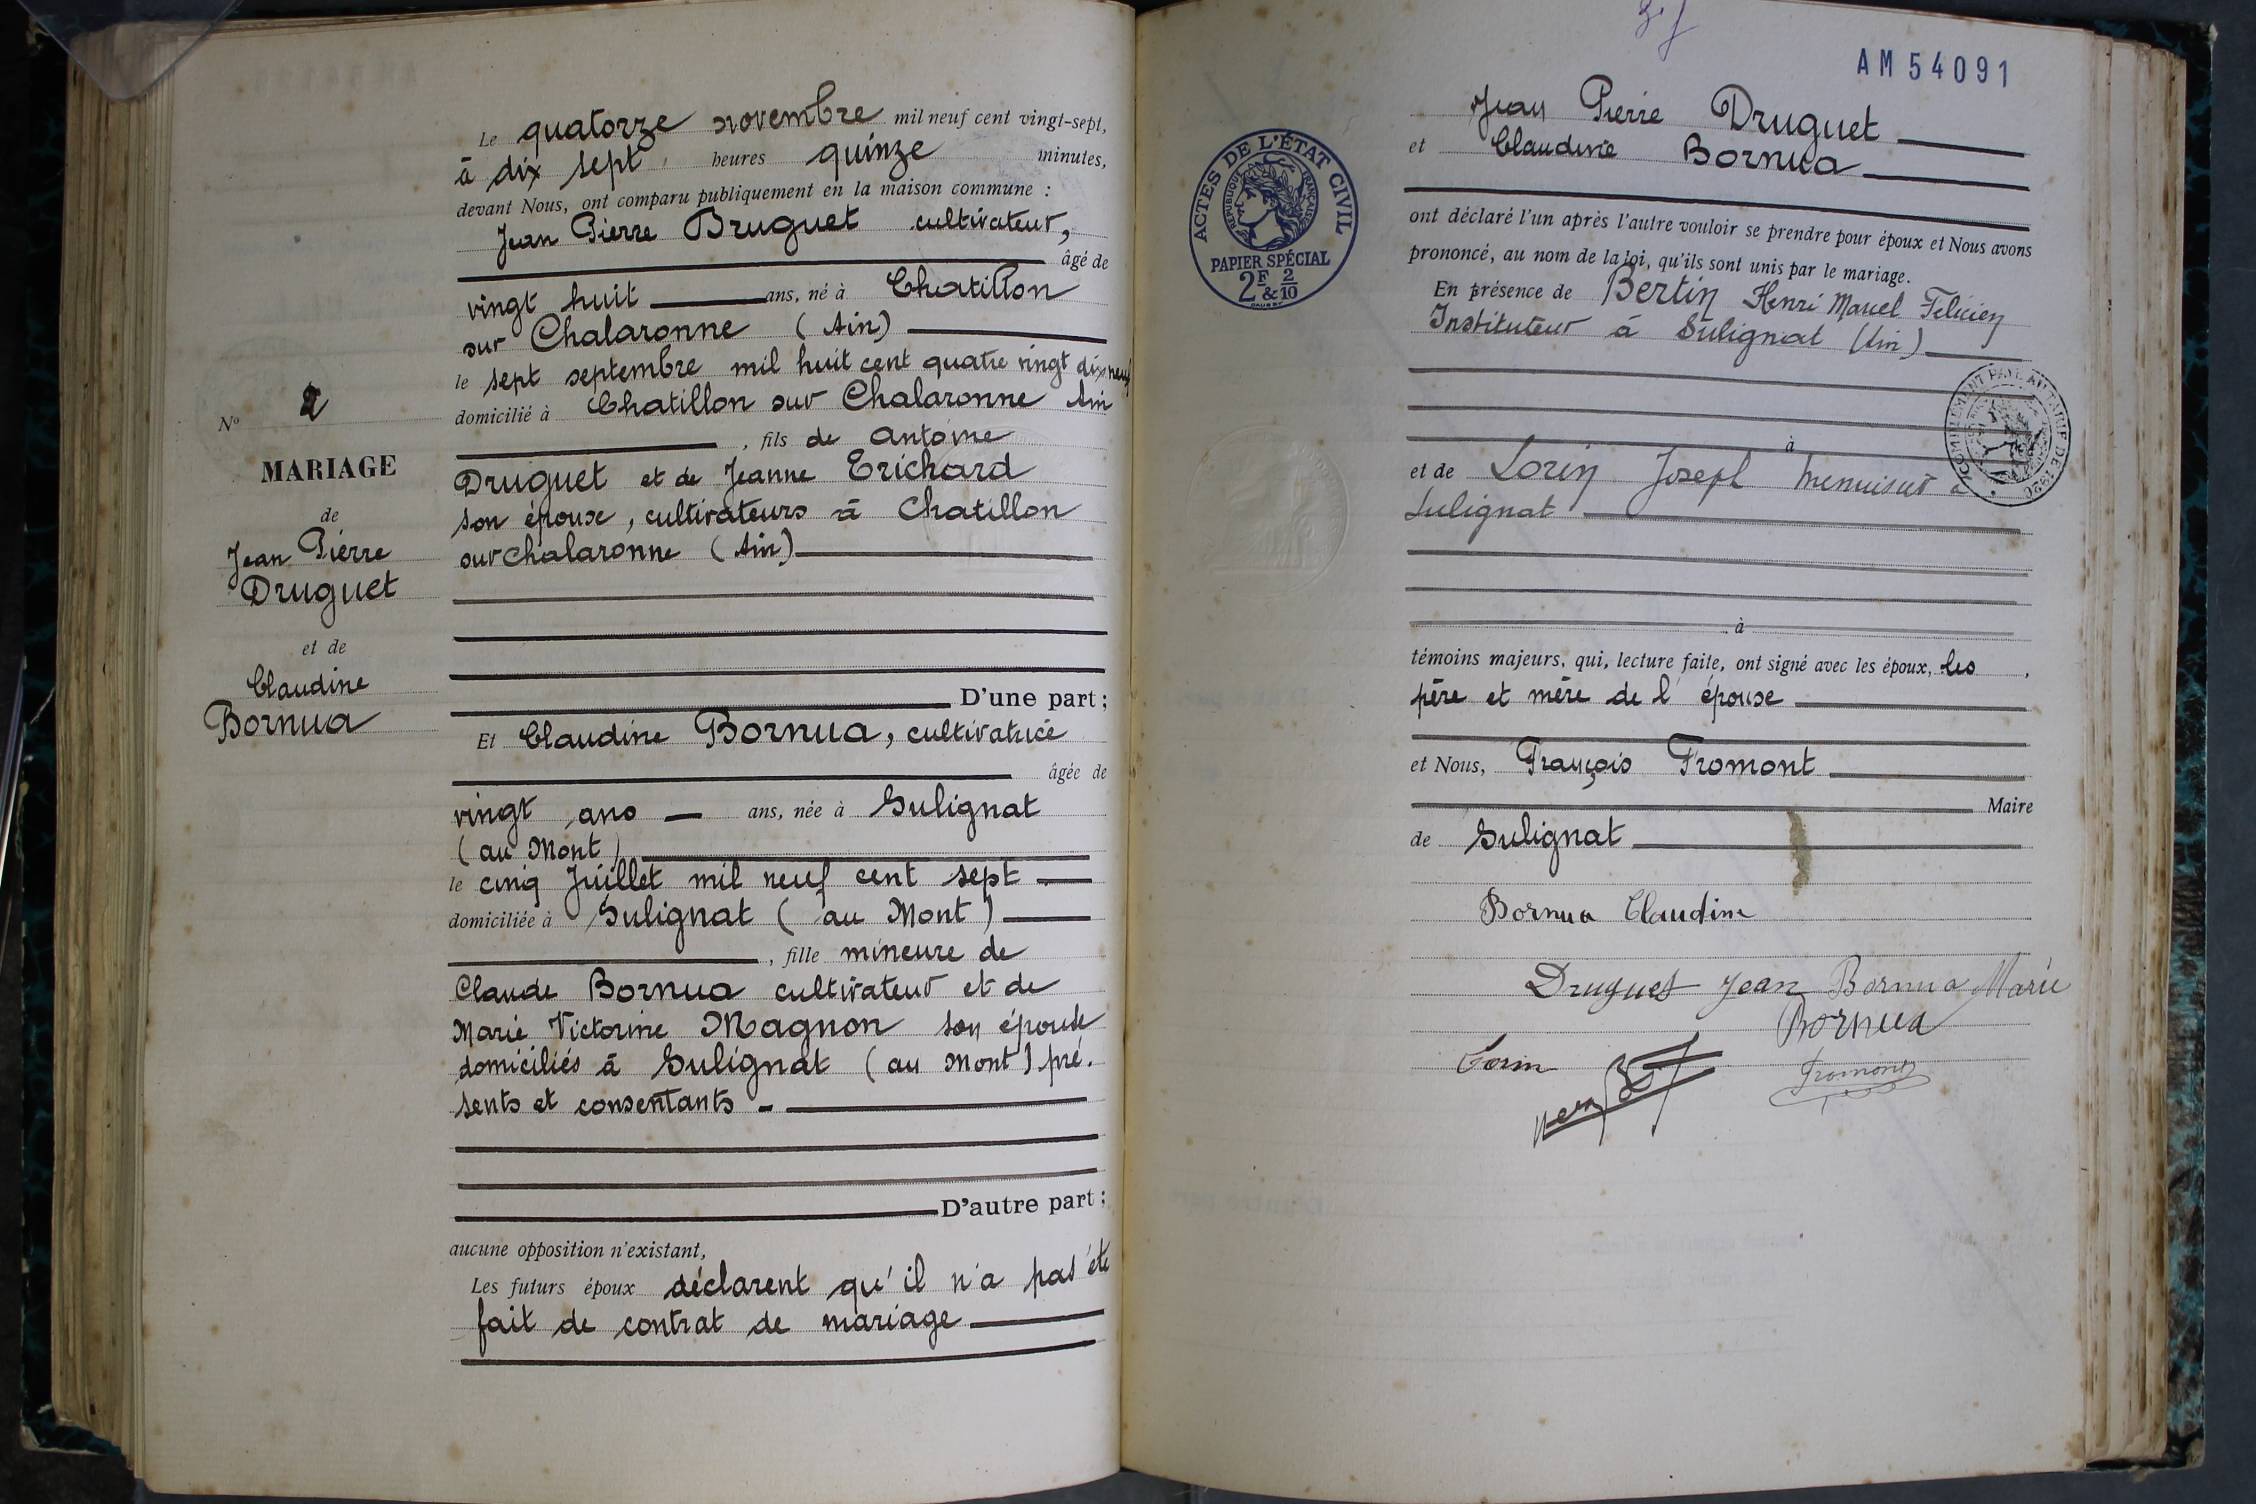 Le quatorze novembre mil neuf cent vingt-sept,
à dix sept heures quinze minutes,
devant Nous, ont comparu publiquement en la maison commune :
Jean Pierre Druguet cultivateur,
âgé de
vingt huit ans, né à Chatillon
sur Chalaronne (Ain)
le sept septembre mil huit cent quatre vingt dix neuf
domicilié à Chatillon sur Chalaronne Ain
, fils de Antoine
Druguet et de Jeanne Erichard
son épouse, cultivateurs à Chatillon
sur Chalaronne (Ain)
D'une part ;
Et Claudine Bornua, cultivatrice
âgée de
vingt ans ans, née à Sulignat
(au Mont)
le cinq Juillet mil neuf cent sept
domiciliée à Sulignat (au Mont)
, fille mineure de
Claude Bornua cultivateur et de
Marie Victorine Magnon son épouse
domiciliés à Sulignat (au Mont) pré.
sents et consentants -
D'autre part ;
aucune opposition n'existant,
Les futurs époux déclarent qu'il n'a pas été
fait de contrat de mariage
No 2
MARIAGE
de
Jean Pierre
Druguet
et de
Claudine
Bornua
AM 54091
Jean Pierre Druguet
et Claudine Bornua
ont déclaré l'un après l'autre vouloir se prendre pour époux et Nous avons
prononcé, au nom de la loi, qu'ils sont unis par le mariage.
En présence de Bertin Henri Marcel Felicien
Instituteur à Sulignat (Ain)
à
et de Lorin Joseph menuisier à
Sulignat
à
témoins majeurs, qui, lecture faite, ont signé avec les époux, les
père et mère de l'épouse
et Nous, François Fromont
Maire
de Sulignat
Bornua Claudine
Druguet Jean Bornua Marie
Bornua
Lorin
Fromont
ACTES DE L'ÉTAT CIVIL
RÉPUBLIQUE FRANÇAISE
PAPIER SPÉCIAL
2F & 2/10